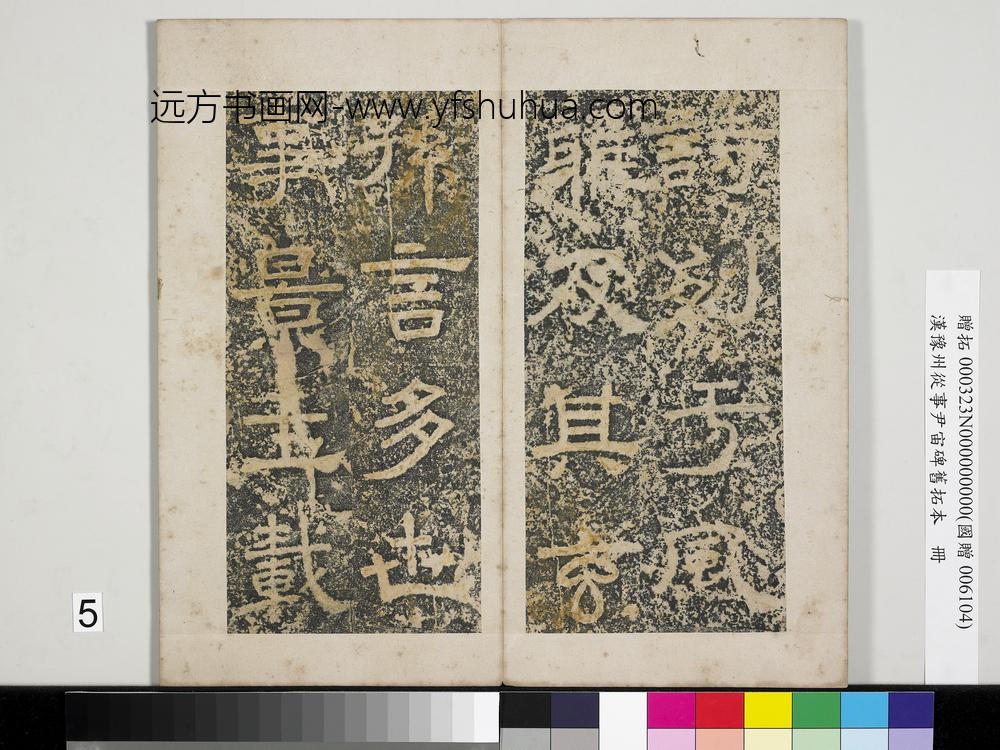 远方书画网-www.yfshuhua.com
詩列于風
雅及其玄
孫言多世
事景王載
贈拓 000323N000000000(國贈 006104)
漢豫州從事尹宙碑舊拓本 冊
5